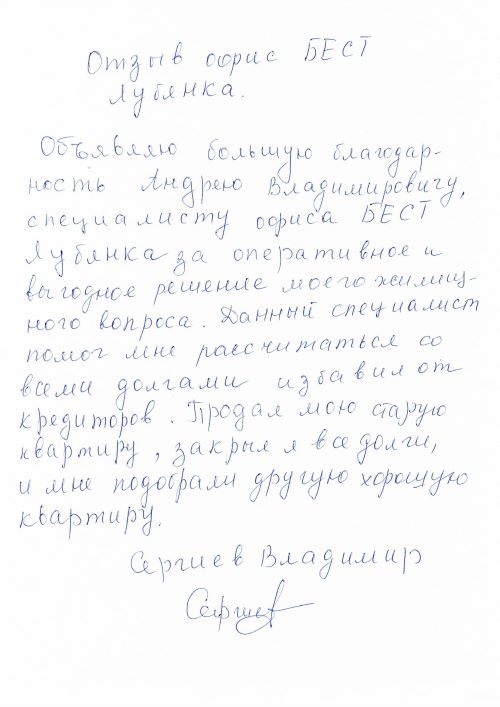 Отзыв офис БЕСТ
Лубянка.
Объявляю большую благодар-
ность Андрею Владимировичу,
специалисту офиса БЕСТ
Лубянка за оперативное и
выгодное решение моего жилищ-
ного вопроса. Данный специалист
помог мне рассчитаться со
всеми долгами избавил от
кредиторов. Продал мою старую
квартиру, закрыл я все долги,
и мне подобрали другую хорошую
квартиру.
Сергиев Владимир
Сергиев